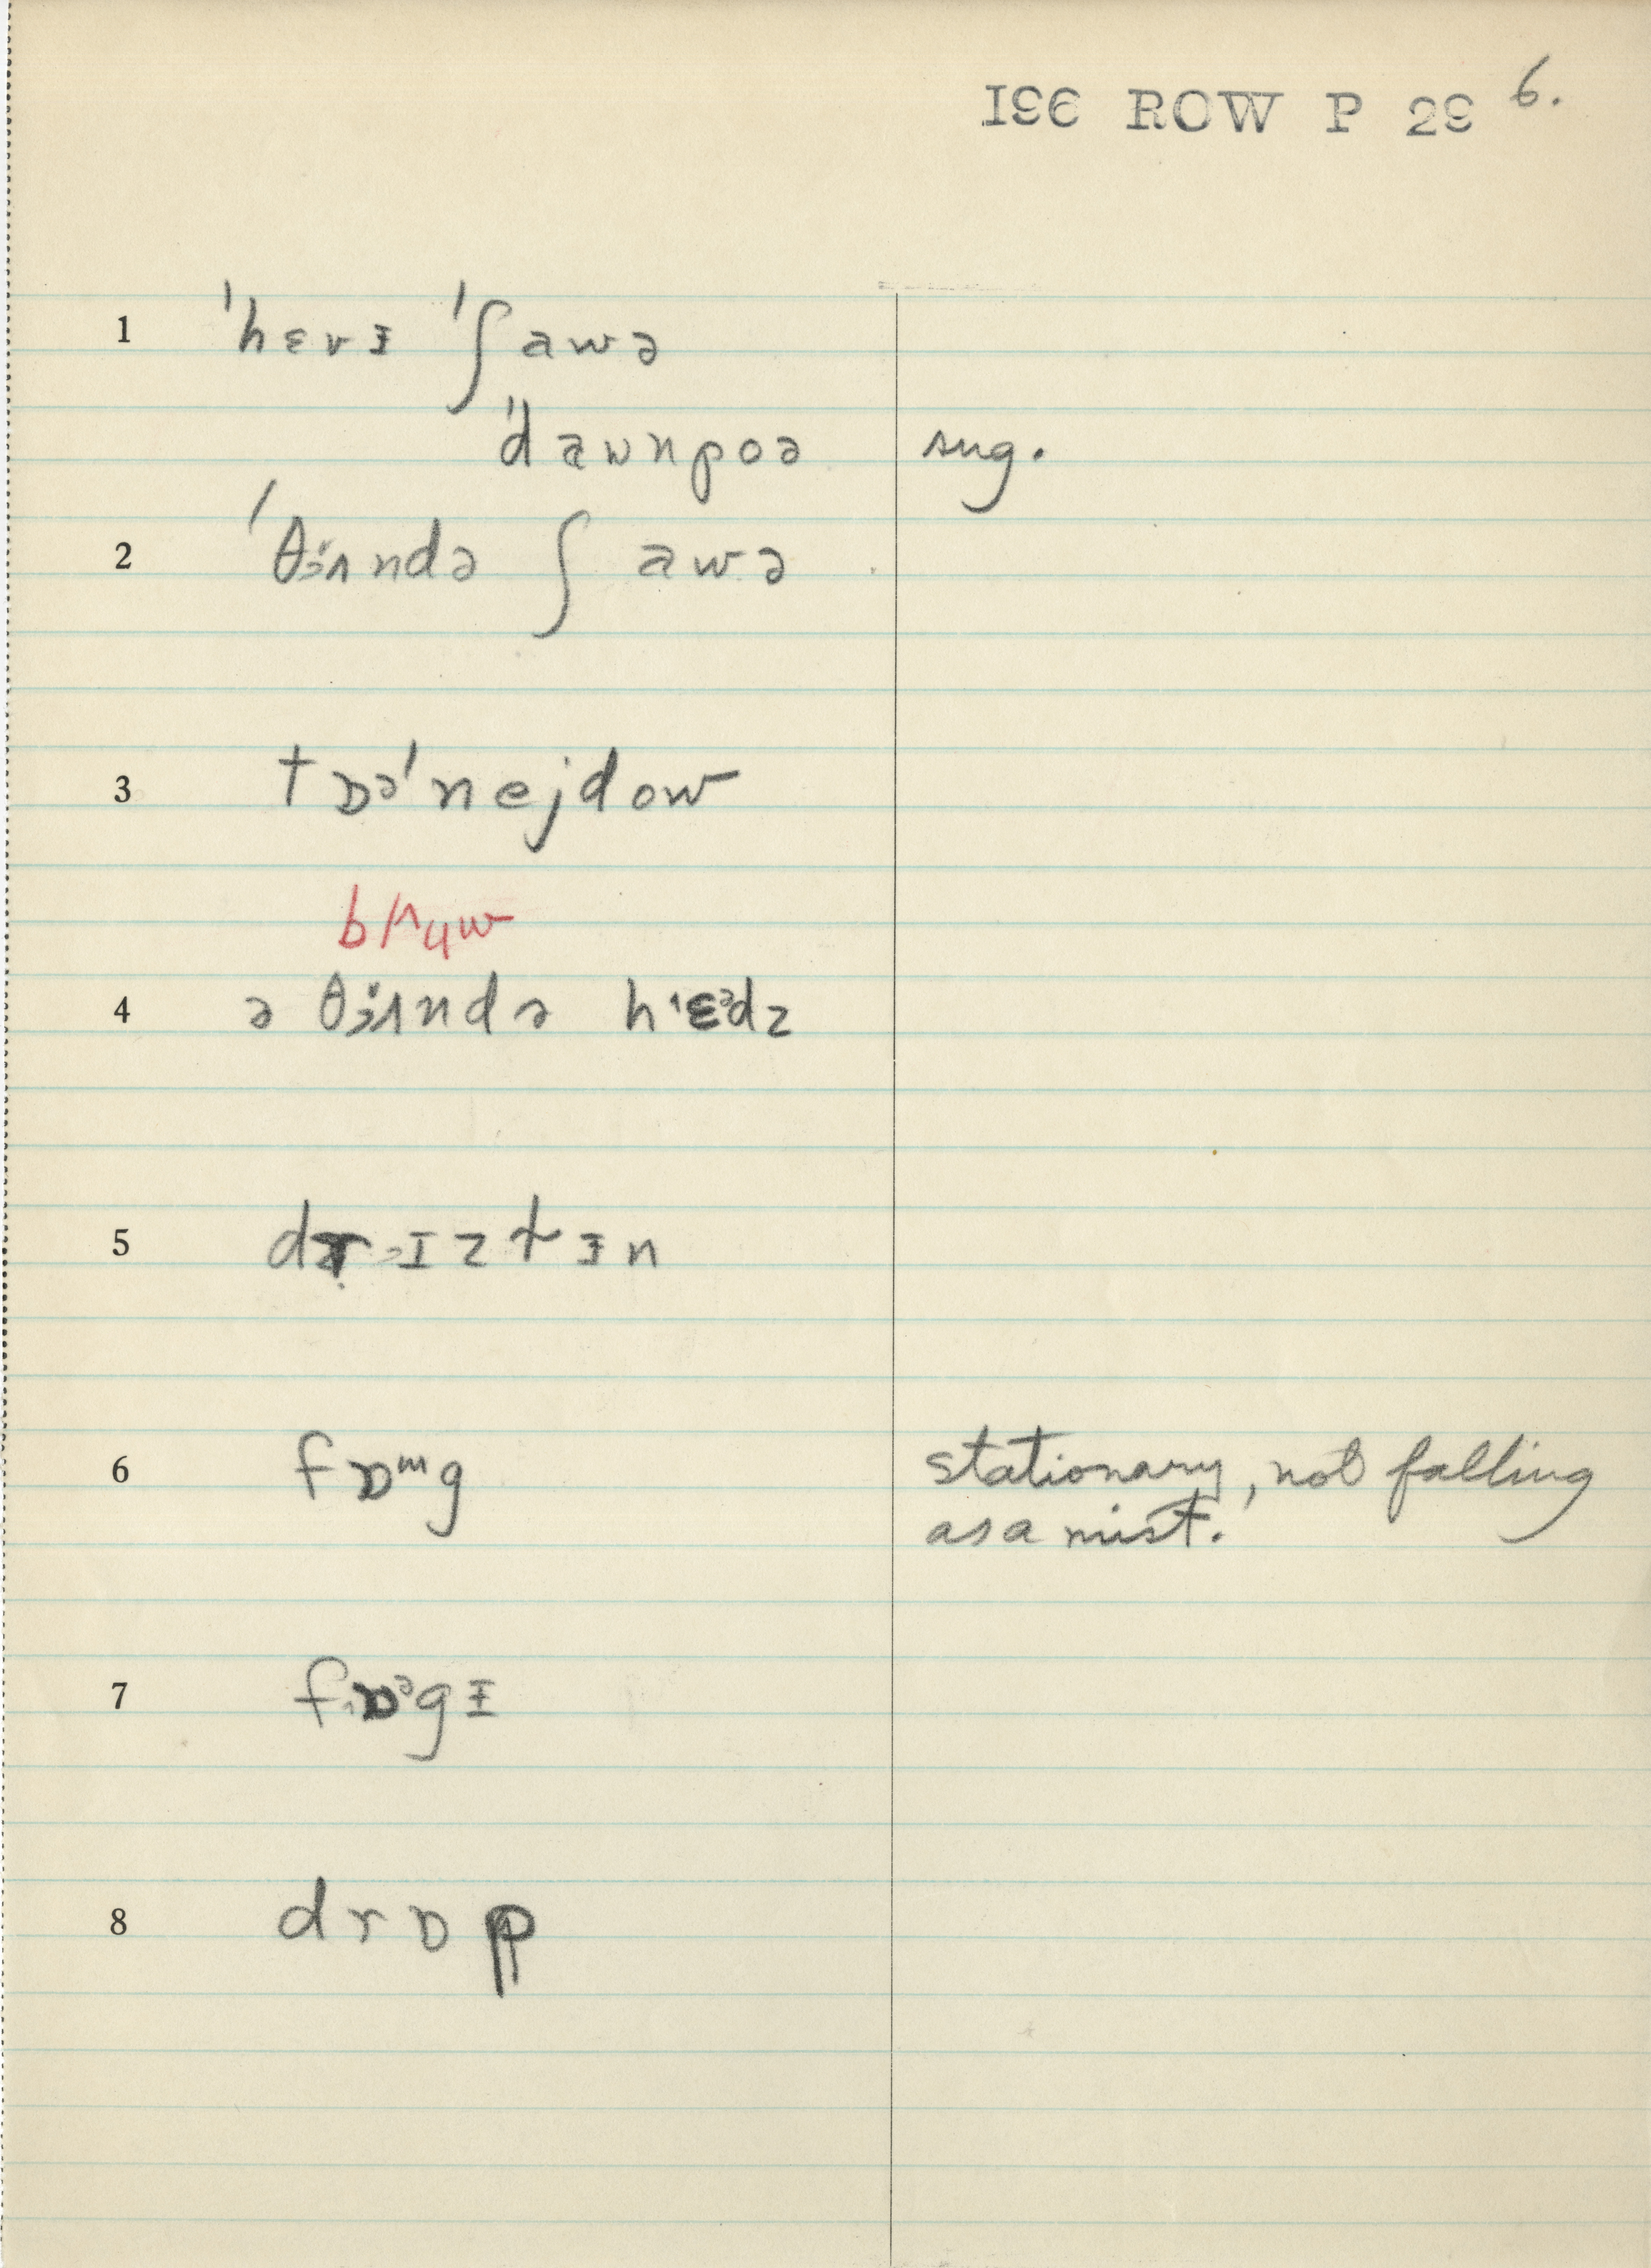 IƐ6 ROW P 29 6.
1 ˈhɛvɪ ˈʃawə
ˈdawnpoə sug.
2 ˈθɜɪndə ʃ awə
3 tɒəˈnejdow
4 ə θɜɪndə hˈɛədz
5 drɪztɪn
6 fɒᵚg stationary, not falling
as a mist.
7 fɒᵊgɪ
8 drɒp